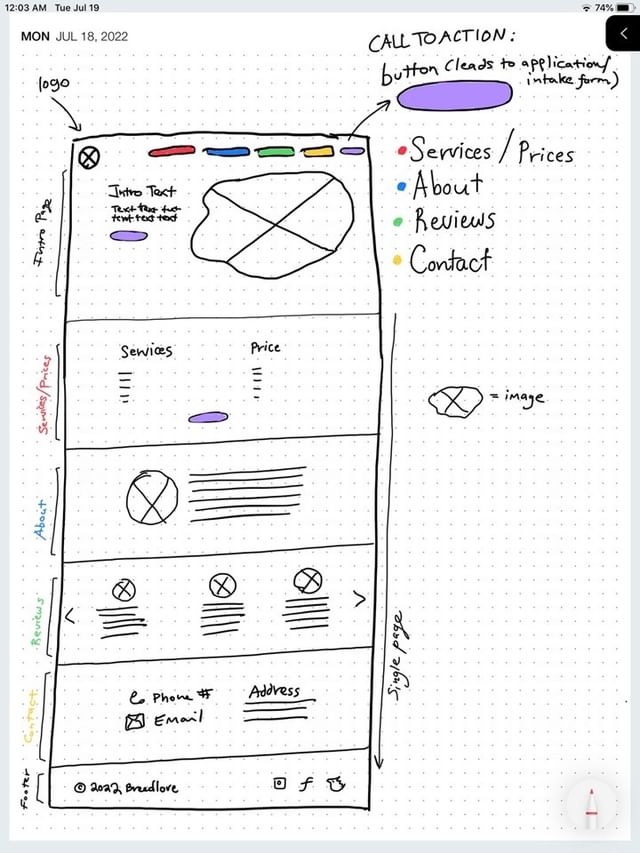 12:03 AM Tue Jul 19
74%
MON JUL 18, 2022
CALL TO ACTION:
button (leads to application/
intake form)
logo
• Services / Prices
• About
• Reviews
• Contact
Intro Page
Intro Text
Text text text
text text text
Services/Prices
Services
Price
= image
About
Reviews
<
>
Single page
Contact
Phone #
Address
Email
Footer
© 2022 Breedlove
f